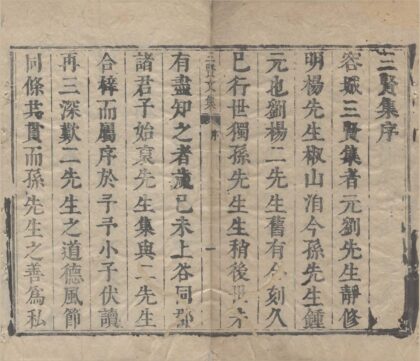 三賢集序
容城三賢集者元劉先生靜修
明楊先生椒山洎今孫先生鍾
元也劉楊二先生舊有合刻久
已行世獨孫先生稍後世未
三賢文集 序 一
有盡知之者歲己未上谷同郡
諸君子始裒先生集與二先生
合梓而屬序於予予小子伏讀
再三深歎二先生之道德風節
同條共貫而孫先生之善為私